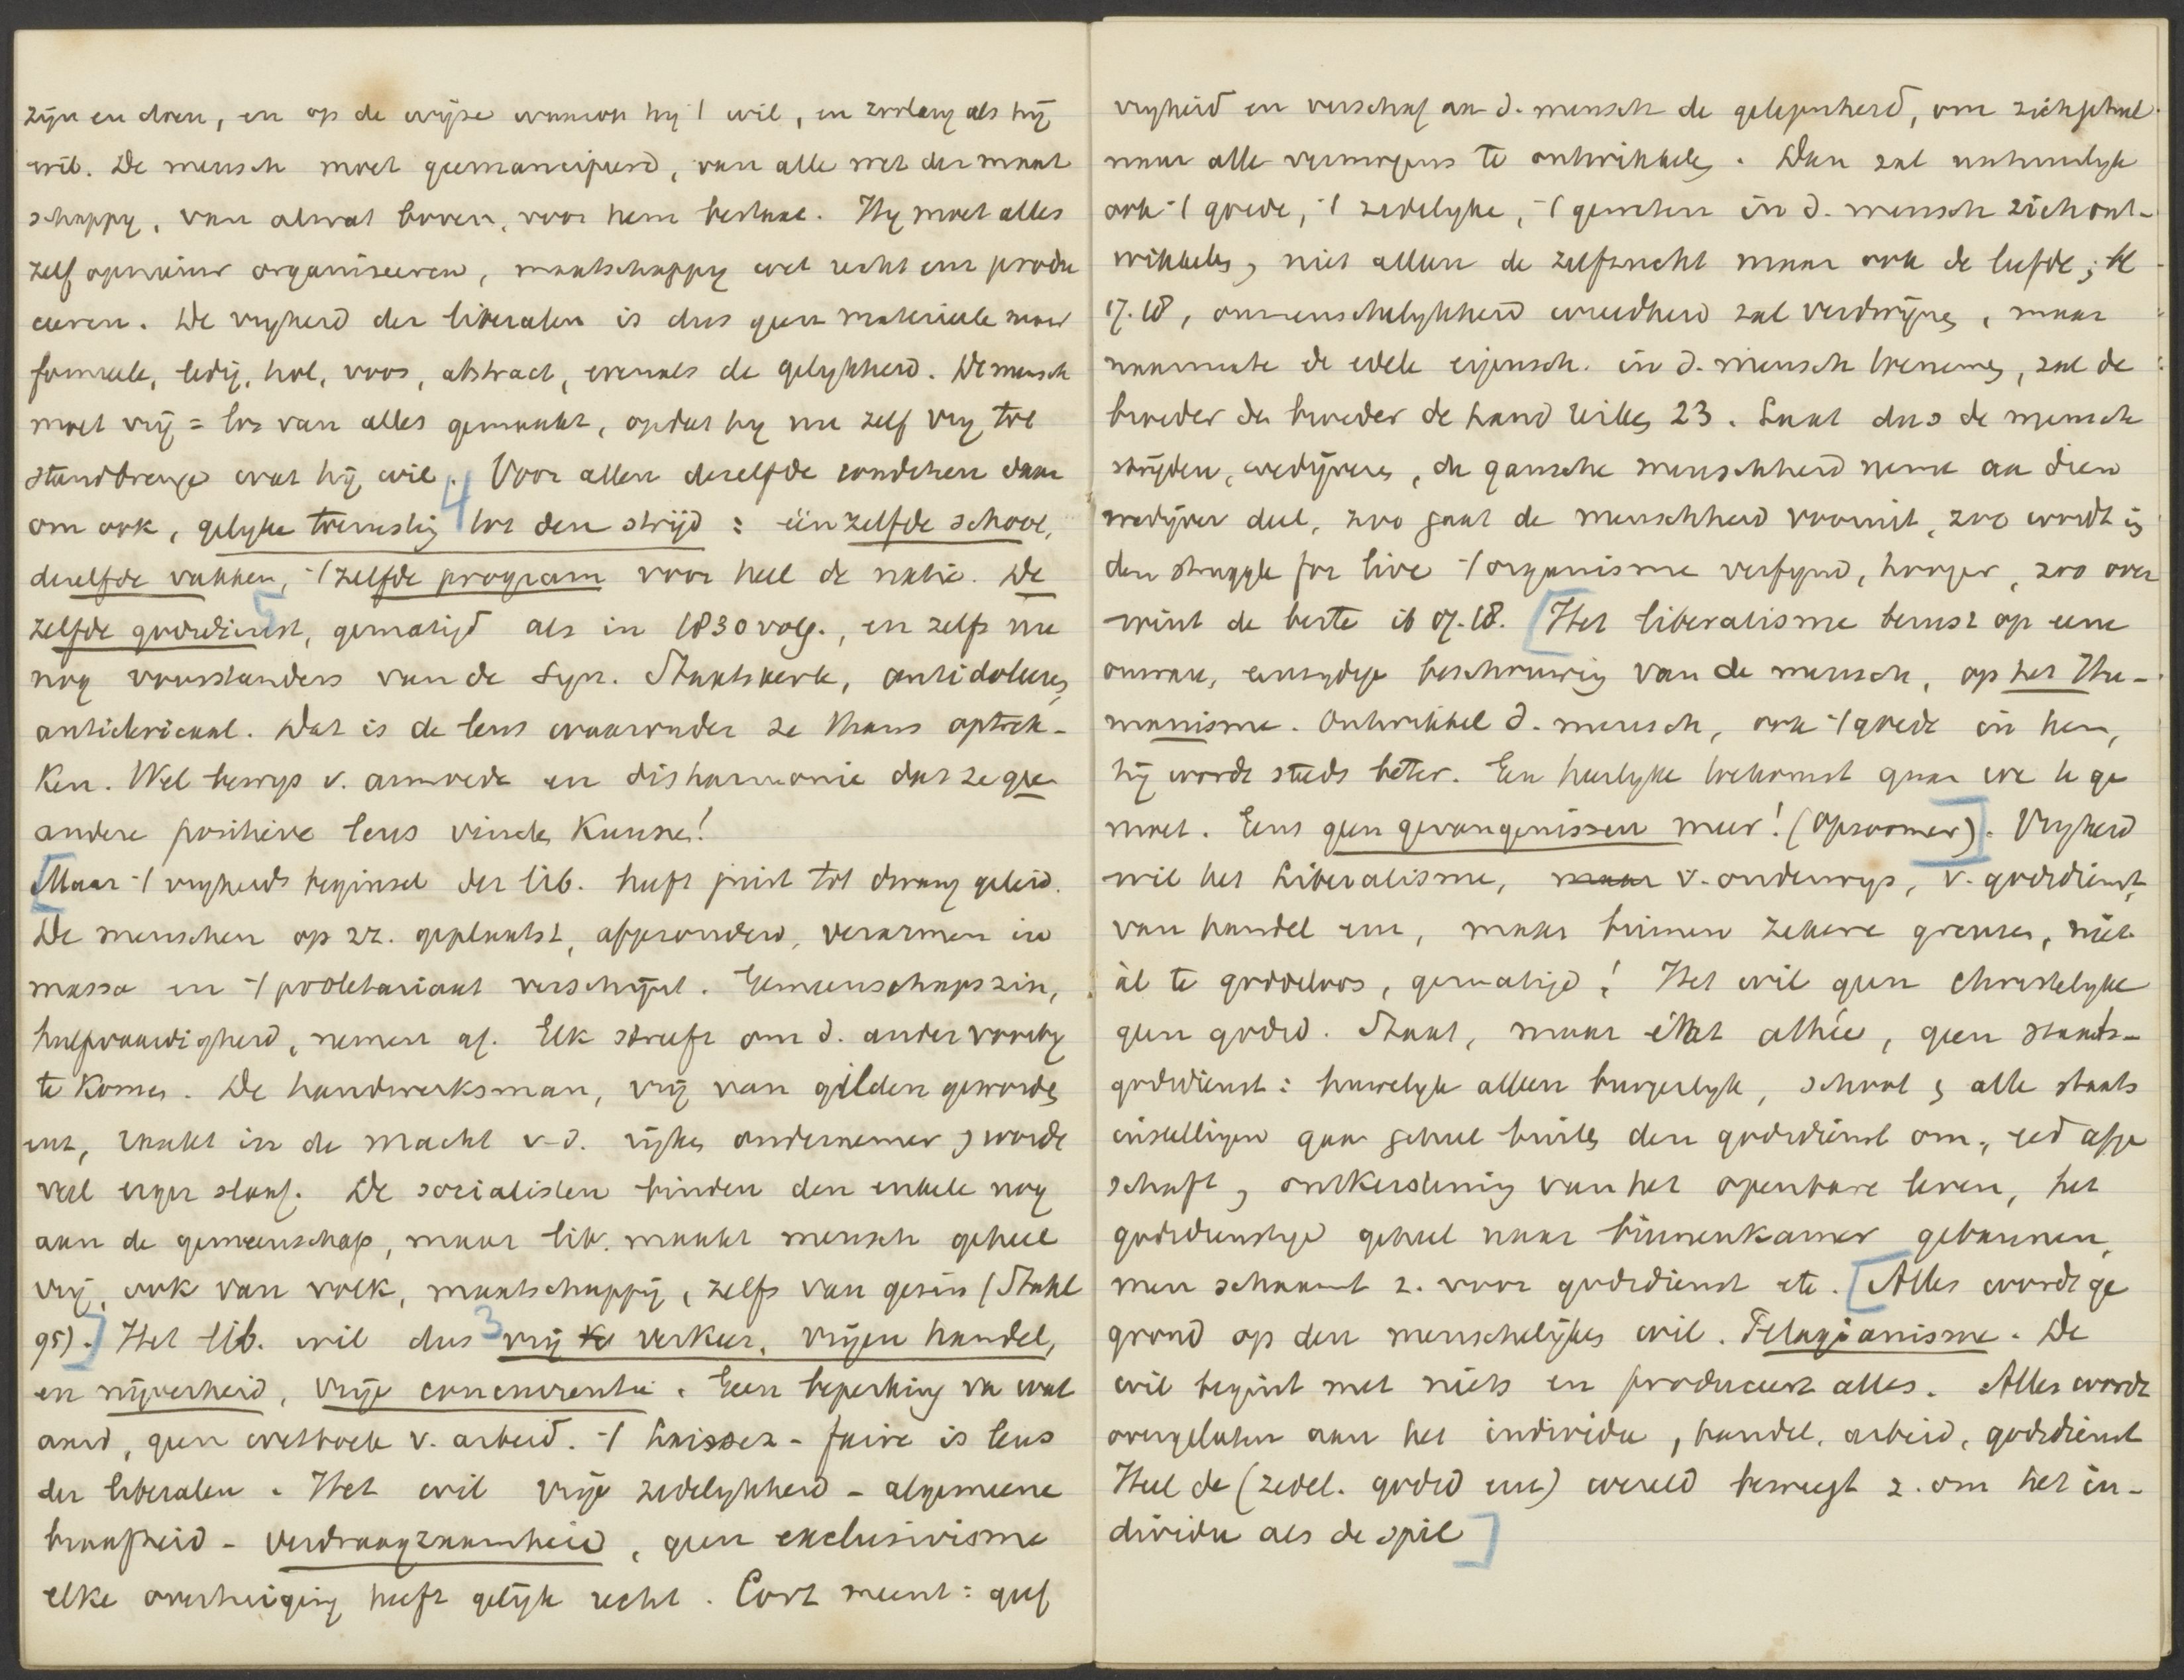 zijn en doen, en op de wijze waarop hij 't wil, en zoolang als hij
wil. De mensch moet geemancipeerd, van alle met der maat
schappy, van alwat boven, voor hem bestaat. Hy moet alles
zelf opnieuw organiseeren, maatschappy wet recht enz produ
ceeren. De vryheid der liberalen is dus geen materieele maar
formeele, ledig, hol, voos, abstract, evenals de gelykheid. De mensch
moet vrij = los van alles gemaakt, opdat hy nu zelf vry tot
stand brenge wat hij wil. Voor allen dezelfde condities daar
om ook, gelyke toerusting 4 tot den strijd : één zelfde school,
dezelfde vakken, 't zelfde program voor heel de natie. De
zelfde godsdienst, gematigd als in 1830 volg., en zelfs nu
nog voorstanders van de Syn. Staatskerk, antidoleere,
anticlericaal. Dat is de leus waaronder ze thans optrek-
ken. Wel bewys v. armoede en disharmonie dat ze geen
andere positieve leus vinden kunnen!
[Maar 't vryheids beginsel der lib. heeft juist tot dwang geleid.
De menschen op zz. geplaatst, afgezonderd, verarmen in
massa en 't proletariaat verschijnt. Gemeenschapszin,
hulpvaardigheid, nemen af. Elk streeft om d. ander voorby
te komen. De handwerksman, vrij van gilden geworden
enz, raakt in de macht v. d. rijken ondernemer, wordt
veel erger slaaf. De socialisten binden den enkele nog
aan de gemeenschap, maar lib. maakt mensch geheel
vrij, ook van volk, maatschappij, zelfs van gezin (Stahl
95).] Het lib. wil dus 3 vrij verkeer, vrijen handel,
en nijverheid, vrije concurrentie. Geen beperking van wat
aard, geen wetboek v. arbeid. 't Laissez-faire is leus
der liberalen. Het wil vrije zedelykheid - algemeene
braafheid - verdraagzaamheid, geen exclusivisme
elke overtuiging heeft gelijk recht. Cort meent: geef
vryheid en verschaf aan d. mensch de gelegenheid, om zich geheel
naar alle vermogens te ontwikkelen. Dan zal natuurlyk
ook 't goede, 't zedelyke, 't gemeten in d. mensch zich ont-
wikkelen, niet alleen de zelfzucht maar ook de liefde; bl
17.18, onmenschelykheid wreedheid zal verdwijnen, maar
naarmate de edele eigensch. in d. mensch toenemen, zal de
broeder den broeder de hand reiken 23. Laat dus de mensch
strijden, wedijveren, de gansche menschheid neme aan dien
wedijver deel, zoo gaat de menschheid vooruit, zoo wordt in
den struggle for live 't organisme verfynd, hooger, zoo over
wint de beste ib 17.18. [Het liberalisme berust op eene
onware, eenzydige beschouwing van de mensch, op het Hu-
manisme. Ontwikkel d. mensch, ook 't goede in hem,
hij wordt steeds beter. Een heerlyke toekomst gaan we te ge
moet. Eens geen gevangenissen meer! (Opzoomer)]. Vryheid
wil het Liberalisme, maar v. onderwys, v. godsdienst,
van handel enz, maar binnen zekere grenzen, niet
àl te goddeloos, gematigd! Het wil geen christelyke
geen godsd. Staat, maar état athée, geen staats-
godsdienst: huwelyk alleen burgerlyk, school, alle staats
instellingen gaan geheel buiten den godsdienst om, eed afge
schaft, ontkerstening van het openbare leven, het
godsdienstige geheel naar binnenkamer gebannen,
men schaamt z. voor godsdienst etc. [Alles wordt ge
grond op den menschelijken wil. Pelagianisme. De
wil begint met niets en produceert alles. Alles wordt
overgelaten aan het individu, handel, arbeid, godsdienst
Heel de (zedel. godsd enz) wereld beweegt z. om het in-
dividu als de spil]